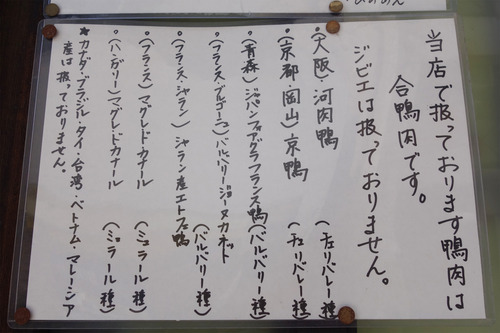 当店で扱っております鴨肉は
合鴨肉です。
ジビエは扱っておりません。
・(大阪)河内鴨 (チェリバレー種)
・(京都・岡山)京鴨 (チェリバレー種)
・(青森)ジャパンフォアグラフランス鴨(バルバリー種)
・(フランス・ブルゴーニュ)バルバリージョーヌカネット (バルバリー種)
・(フランス・シャラン)シャラン産エトフェ鴨
・(フランス)マグレドカナール (ミュラール種)
・(ハンガリー)マグレドカナール (ミュラール種)
★カナダ・ブラジル・タイ・台湾・ベトナム・マレーシア
産は扱っておりません。